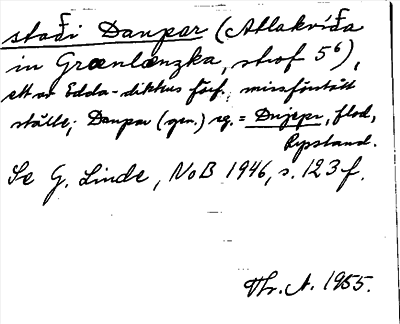 staði Danpar (Atlakviða
in Grœnlenzka, strof 5⁶),
ett av Edda-diktens förf. missförstått
ställe; Danpar (gen.) eg. = Dnjepr, flod,
Ryssland.
Se G. Linde, NoB 1946, s. 123 f.
Thr. A. 1955.